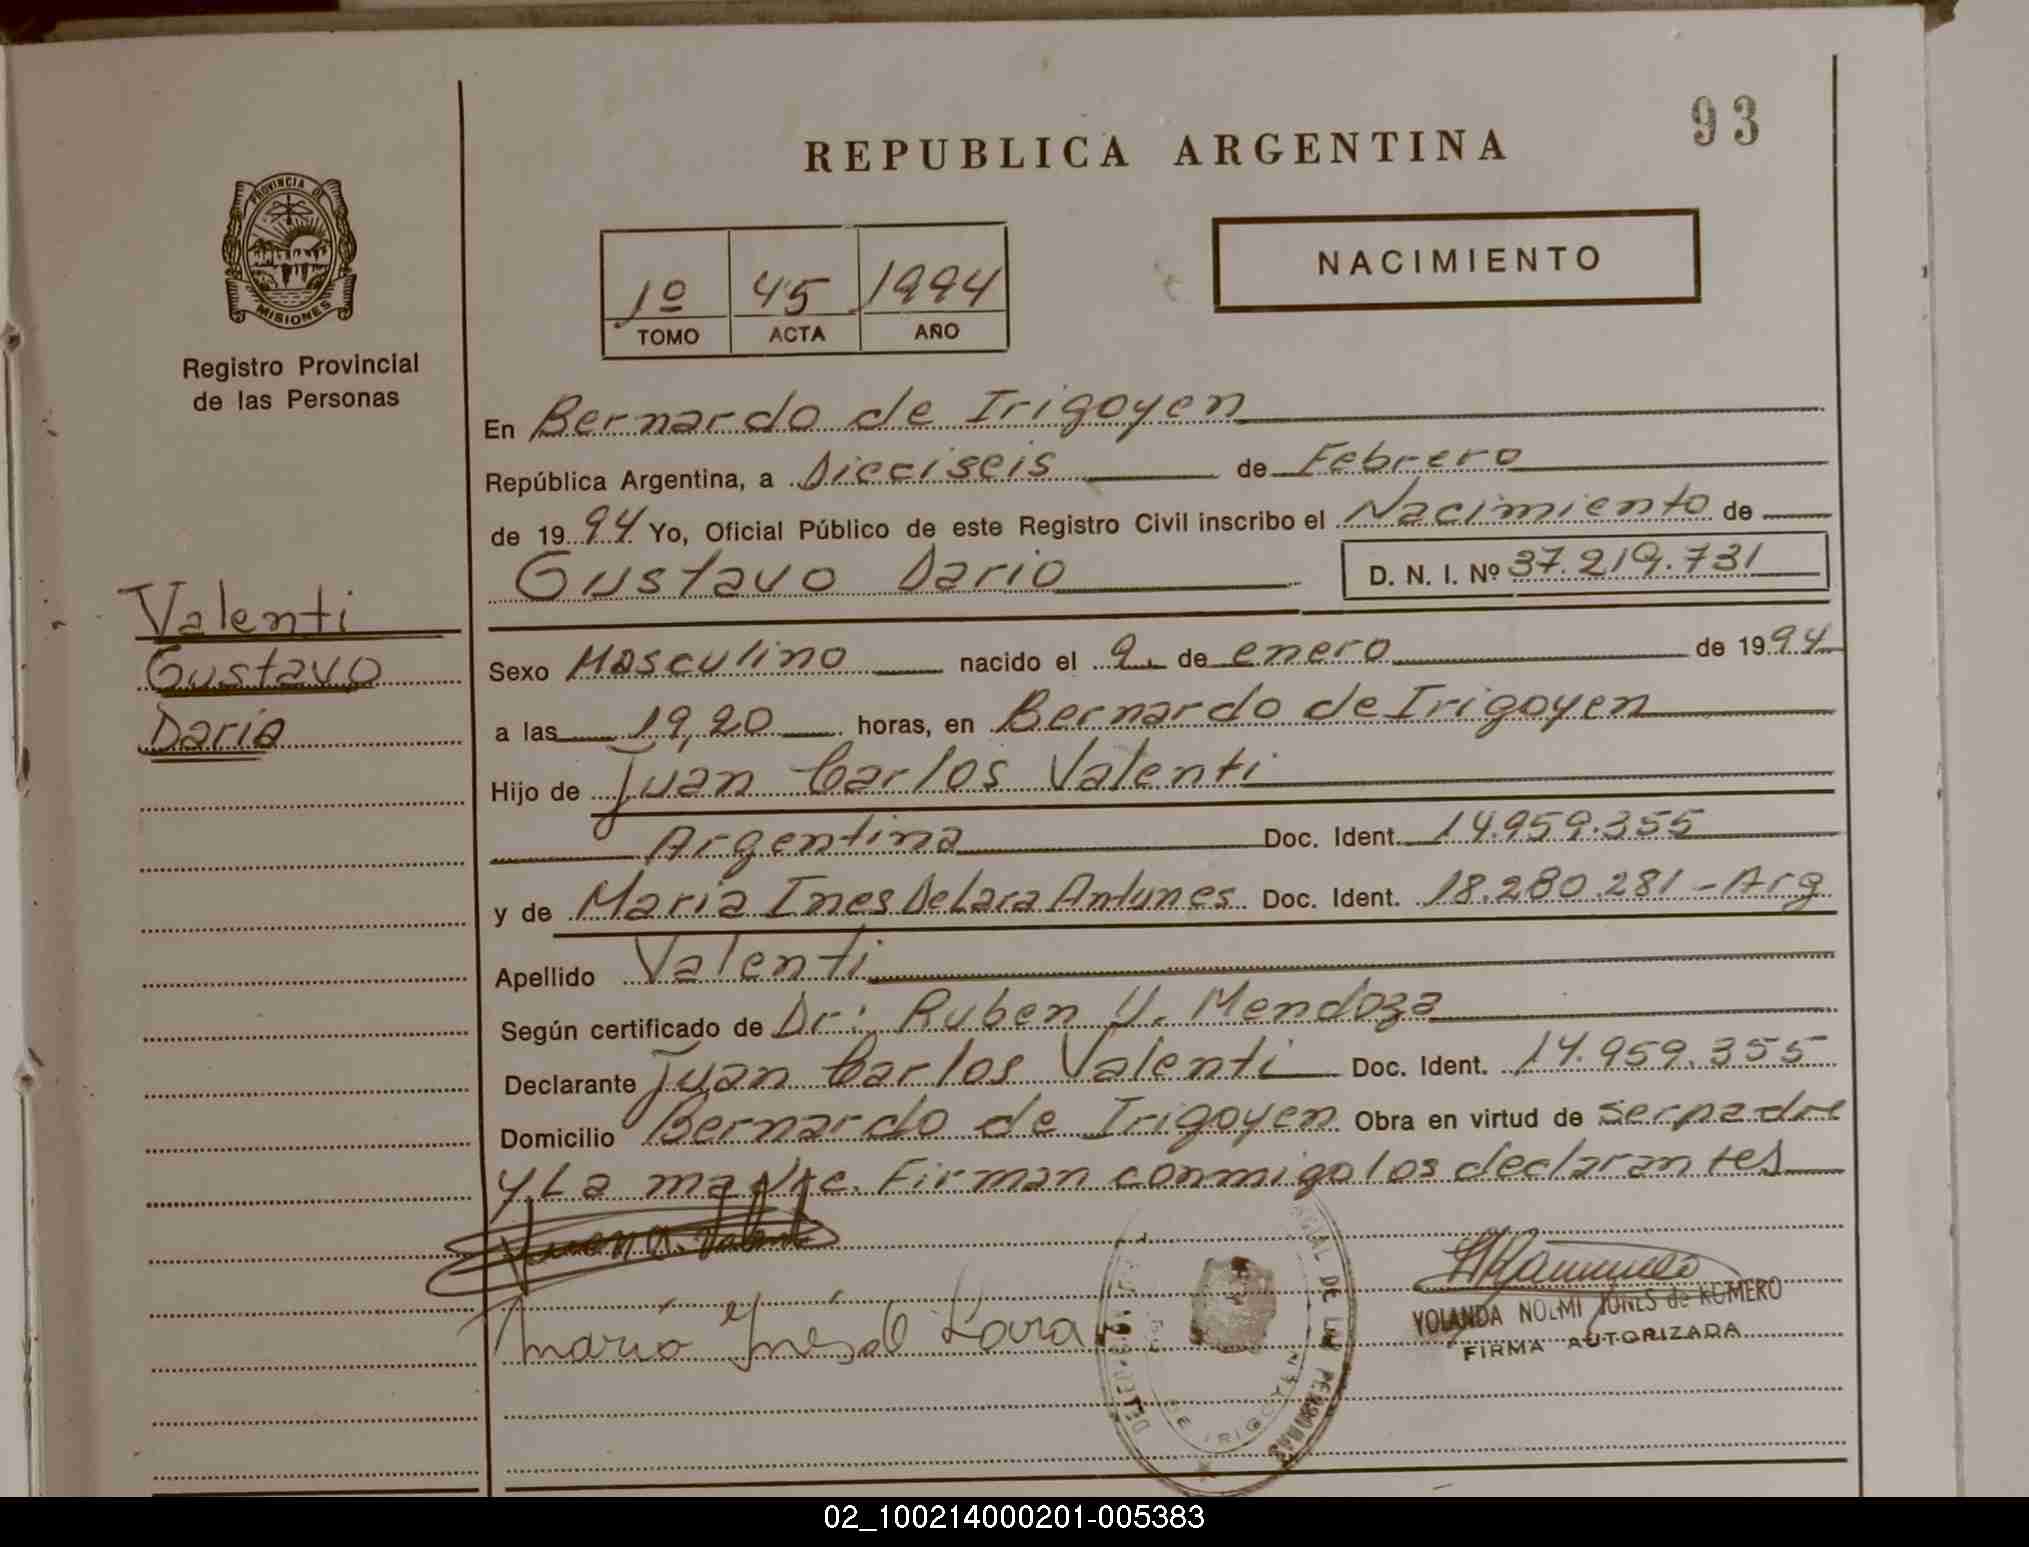 93
REPUBLICA ARGENTINA
PROVINCIA DE
MISIONES
Registro Provincial
de las Personas
1º 45 1994
TOMO ACTA AÑO
NACIMIENTO
En Bernardo de Irigoyen
República Argentina, a Dieciseis de Febrero
de 1994 Yo, Oficial Público de este Registro Civil inscribo el Nacimiento de
Gustavo Dario D. N. I. Nº 37.219.731
Valenti
Gustavo
Dario
Sexo Masculino nacido el 9 de enero de 1994
a las 19,20 horas, en Bernardo de Irigoyen
Hijo de Juan Carlos Valenti
Argentina Doc. Ident. 14.959.355
y de Maria Ines De Lara Antunes Doc. Ident. 18.280.281 - Arg
Apellido Valenti
Según certificado de Dr: Ruben U. Mendoza
Declarante Juan Carlos Valenti Doc. Ident. 14.959.355
Domicilio Bernardo de Irigoyen Obra en virtud de ser padre
y La madre. Firman conmigo los declarantes
Maria Inés de Lara
DE LAS PERSONAS
DE IRIGOYEN
YOLANDA NOEMI JONES de ROMERO
FIRMA AUTORIZADA
02_100214000201-005383